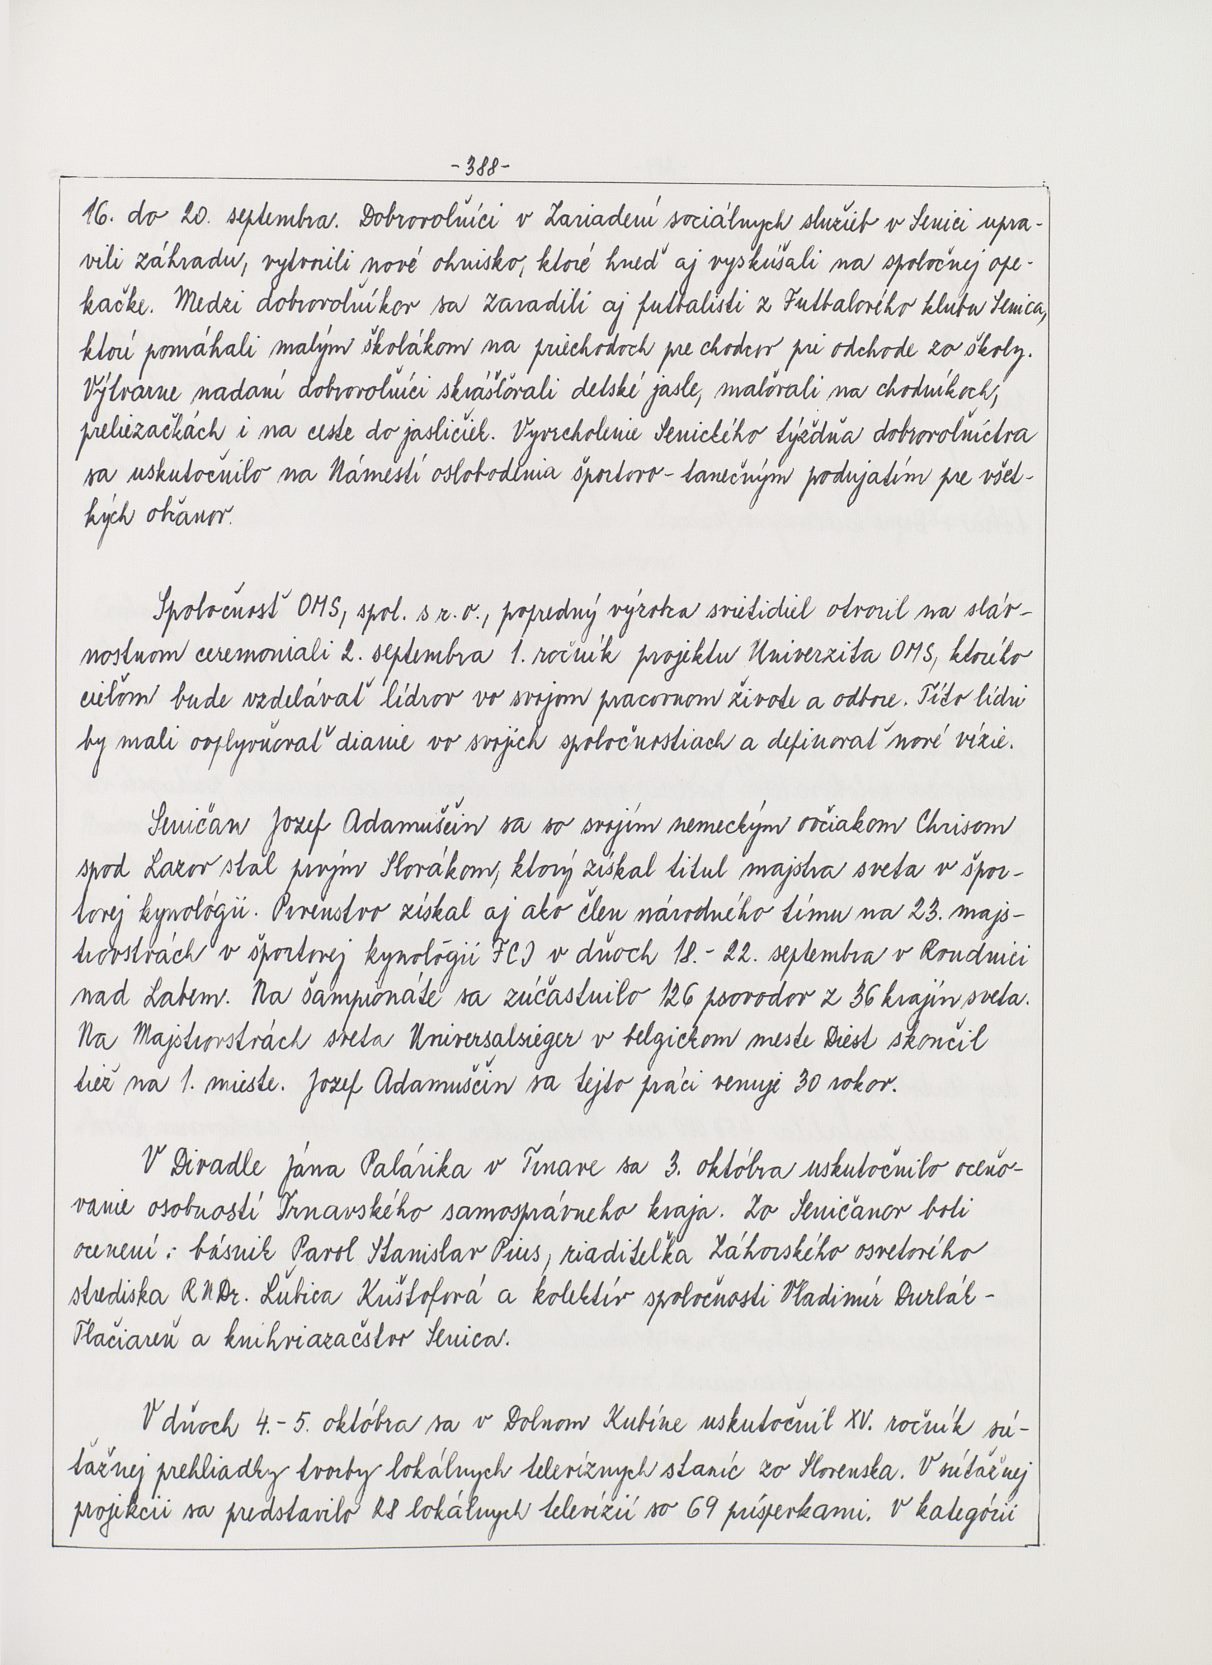 -388-
16. do 20. septembra. Dobrovoľníci v Zariadení sociálnych služieb v Senici upra-
vili záhradu, vytvorili nové ohnisko, ktoré hneď aj vyskúšali na spoločnej ope-
kačke. Medzi dobrovoľníkov sa zaradili aj futbalisti z Futbalového klubu Senica,
ktorí pomáhali malým školákom na priechodoch pre chodcov pri odchode zo školy.
Výtvarne nadaní dobrovoľníci skrášľovali detské jasle, maľovali na chodníkoch,
preliezačkách i na ceste do jasličiek. Vyvrcholenie Senického týždňa dobrovoľníctva
sa uskutočnilo na Námestí oslobodenia športovo-tanečným podujatím pre všet-
kých občanov.
Spoločnosť OMS, spol. s r. o., popredný výrobca svietidiel otvoril na sláv-
nostnom ceremoniali 2. septembra 1. ročník projektu Univerzita OMS, ktorého
cieľom bude vzdelávať lídrov vo svojom pracovnom živote a odbore. Títo lídri
by mali ovplyvňovať dianie vo svojich spoločnostiach a definovať nové vízie.
Seničan Jozef Adamuščin sa so svojím nemeckým ovčiakom Chrisom
spod Lazov stal prvým Slovákom, ktorý získal titul majstra sveta v špor-
tovej kynológii. Prvenstvo získal aj ako člen národného tímu na 23. majs-
trovstvách v športovej kynológii FCI v dňoch 18. - 22. septembra v Roudnici
nad Labem. Na šampionáte sa zúčastnilo 126 psovodov z 36 krajín sveta.
Na Majstrovstvách sveta Universalsieger v belgickom meste Diest skončil
tiež na 1. mieste. Jozef Adamuščin sa tejto práci venuje 30 rokov.
V Divadle Jána Palárika v Trnave sa 3. októbra uskutočnilo oceňo-
vanie osobností Trnavského samosprávneho kraja. Zo Seničanov boli
ocenení: básnik Pavol Stanislav Pius, riaditeľka Záhorského osvetového
strediska RNDr. Ľubica Krištofová a kolektív spoločnosti Vladimír Durlák -
Tlačiareň a knihviazačstvo Senica.
V dňoch 4. - 5. októbra sa v Dolnom Kubíne uskutočnil XV. ročník sú-
ťažnej prehliadky tvorby lokálnych televíznych staníc zo Slovenska. V súťažnej
projekcii sa predstavilo 28 lokálnych televízií so 69 príspevkami. V kategórii